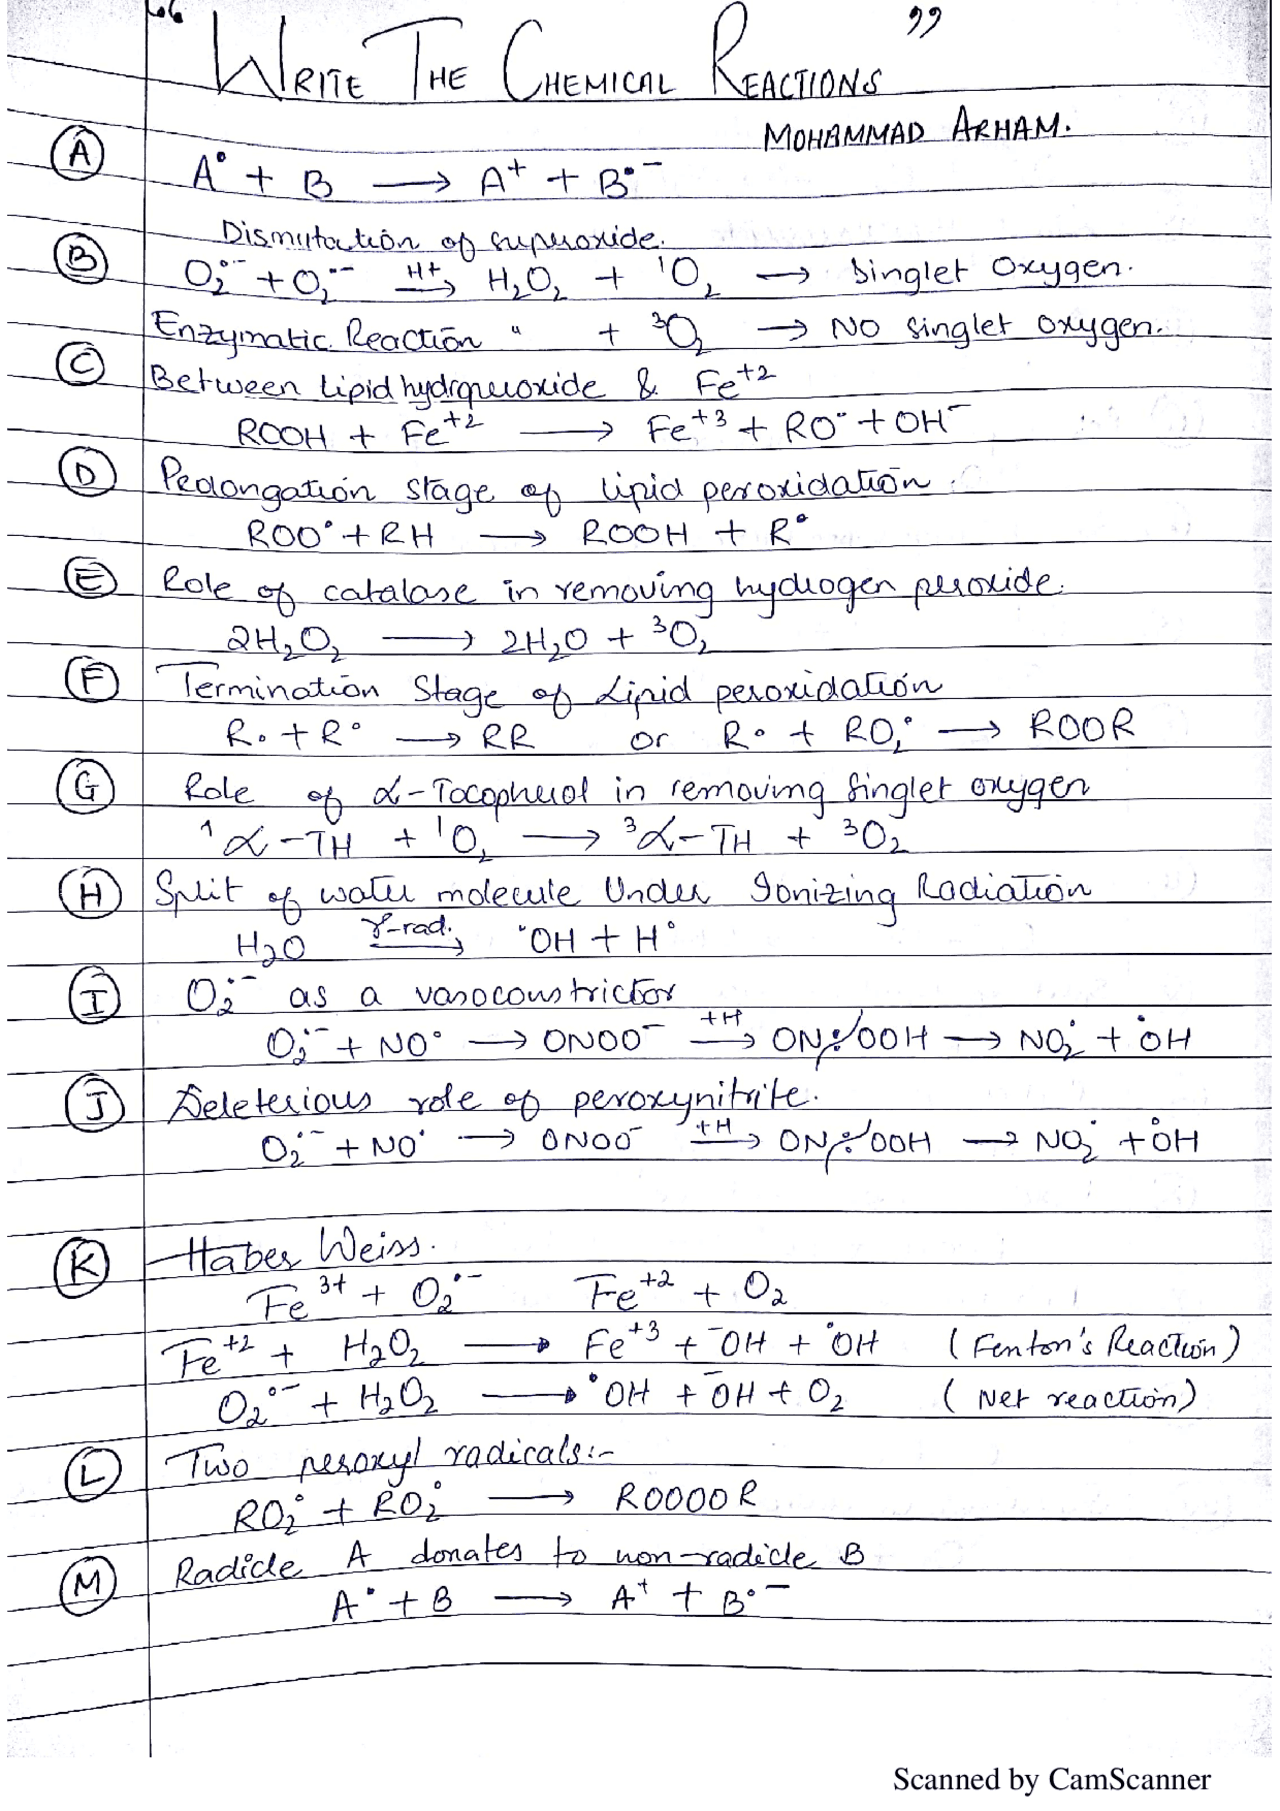 “ WRITE THE CHEMICAL REACTIONS ”
MOHAMMAD ARHAM.
(A) A• + B ⟶ A⁺ + B•⁻
Dismutation of superoxide.
(B) O₂•⁻ + O₂•⁻ —H+→ H₂O₂ + ¹O₂ → Singlet Oxygen.
Enzymatic Reaction " + ³O₂ → NO singlet oxygen.
(C) Between lipid hydroperoxide & Fe⁺²
ROOH + Fe⁺² ⟶ Fe⁺³ + RO•• + OH⁻
(D) Prolongation stage of lipid peroxidation.
ROO• + RH ⟶ ROOH + R•
(E) Role of catalase in removing hydrogen peroxide.
2H₂O₂ ⟶ 2H₂O + ³O₂
(F) Termination Stage of Lipid peroxidation
R• + R• ⟶ RR or R• + RO₂• ⟶ ROOR
(G) Role of α-Tocopherol in removing Singlet oxygen
¹α-TH + ¹O₂ ⟶ ³α-TH + ³O₂
(H) Split of water molecule Under Ionizing Radiation
H₂O —γ-rad.→ •OH + H•
(I) O₂•⁻ as a vasoconstrictor
O₂•⁻ + NO• ⟶ ONOO⁻ —+H→ ON•/•OOH ⟶ NO₂• + •OH
(J) Deleterious role of peroxynitrite.
O₂•⁻ + NO• ⟶ ONOO⁻ —+H→ ON•/•OOH ⟶ NO₂• + •OH
(K) Haber Weiss.
Fe³⁺ + O₂•⁻ Fe⁺² + O₂
Fe⁺² + H₂O₂ ⟶ Fe⁺³ + ⁻OH + •OH (Fenton's Reaction)
O₂•⁻ + H₂O₂ ⟶ •OH + ⁻OH + O₂ (Net reaction)
(L) Two peroxyl radicals:-
RO₂• + RO₂• ⟶ ROOOOR
(M) Radicle A donates to non-radicle B
A• + B ⟶ A⁺ + B•⁻
Scanned by CamScanner